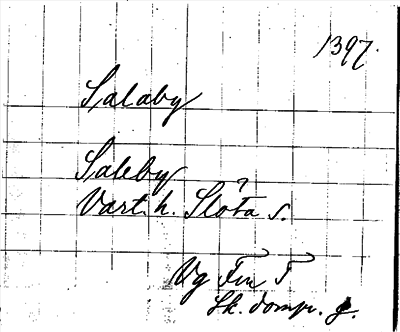 1397.
Salaby
Saleby
Vart. h. Slöta s.
Vg Fru T
Sk. dompr. g.